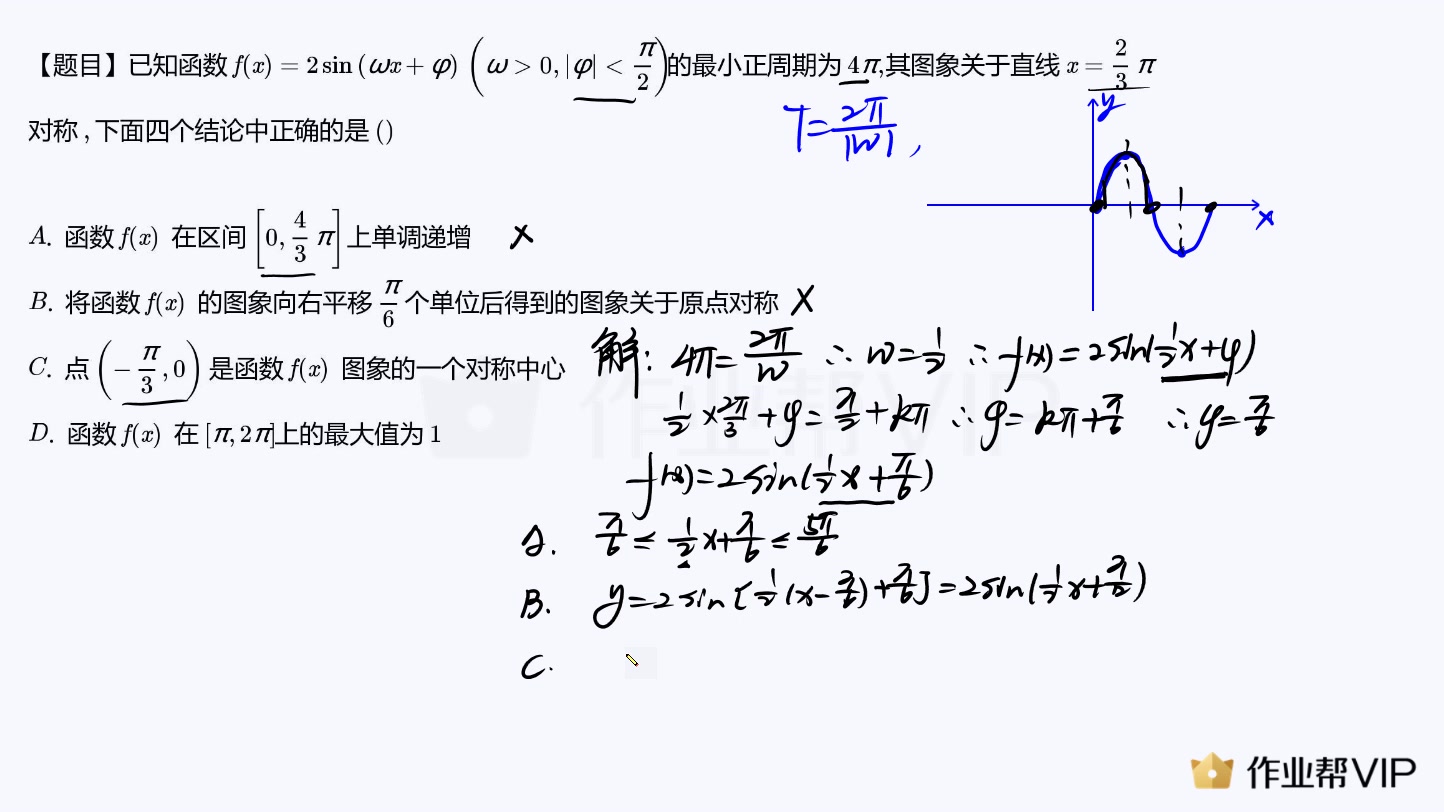 【题目】已知函数 f(x) = 2 sin (ωx + φ) (ω > 0, |φ| < π/2) 的最小正周期为 4π,其图象关于直线 x = 2/3 π
对称 , 下面四个结论中正确的是 ()
T = 2π/|W| ,
y
x
A. 函数 f(x) 在区间 [0, 4/3 π] 上单调递增 ×
B. 将函数 f(x) 的图象向右平移 π/6 个单位后得到的图象关于原点对称 ×
C. 点 (−π/3, 0) 是函数 f(x) 图象的一个对称中心
D. 函数 f(x) 在 [π, 2π]上的最大值为 1
解: 4π = 2π/W ∴ W = 1/2 ∴ f(x) = 2sin(1/2 x + φ)
1/2 × 2π/3 + φ = π/2 + kπ ∴ φ = kπ + π/6 ∴ φ = π/6
f(x) = 2sin(1/2 x + π/6)
A. π/6 ≤ 1/2 x + π/6 ≤ 5π/6
B. y = 2sin[1/2 (x − π/6) + π/6] = 2sin(1/2 x + π/12)
C.
作业帮VIP
作业帮VIP